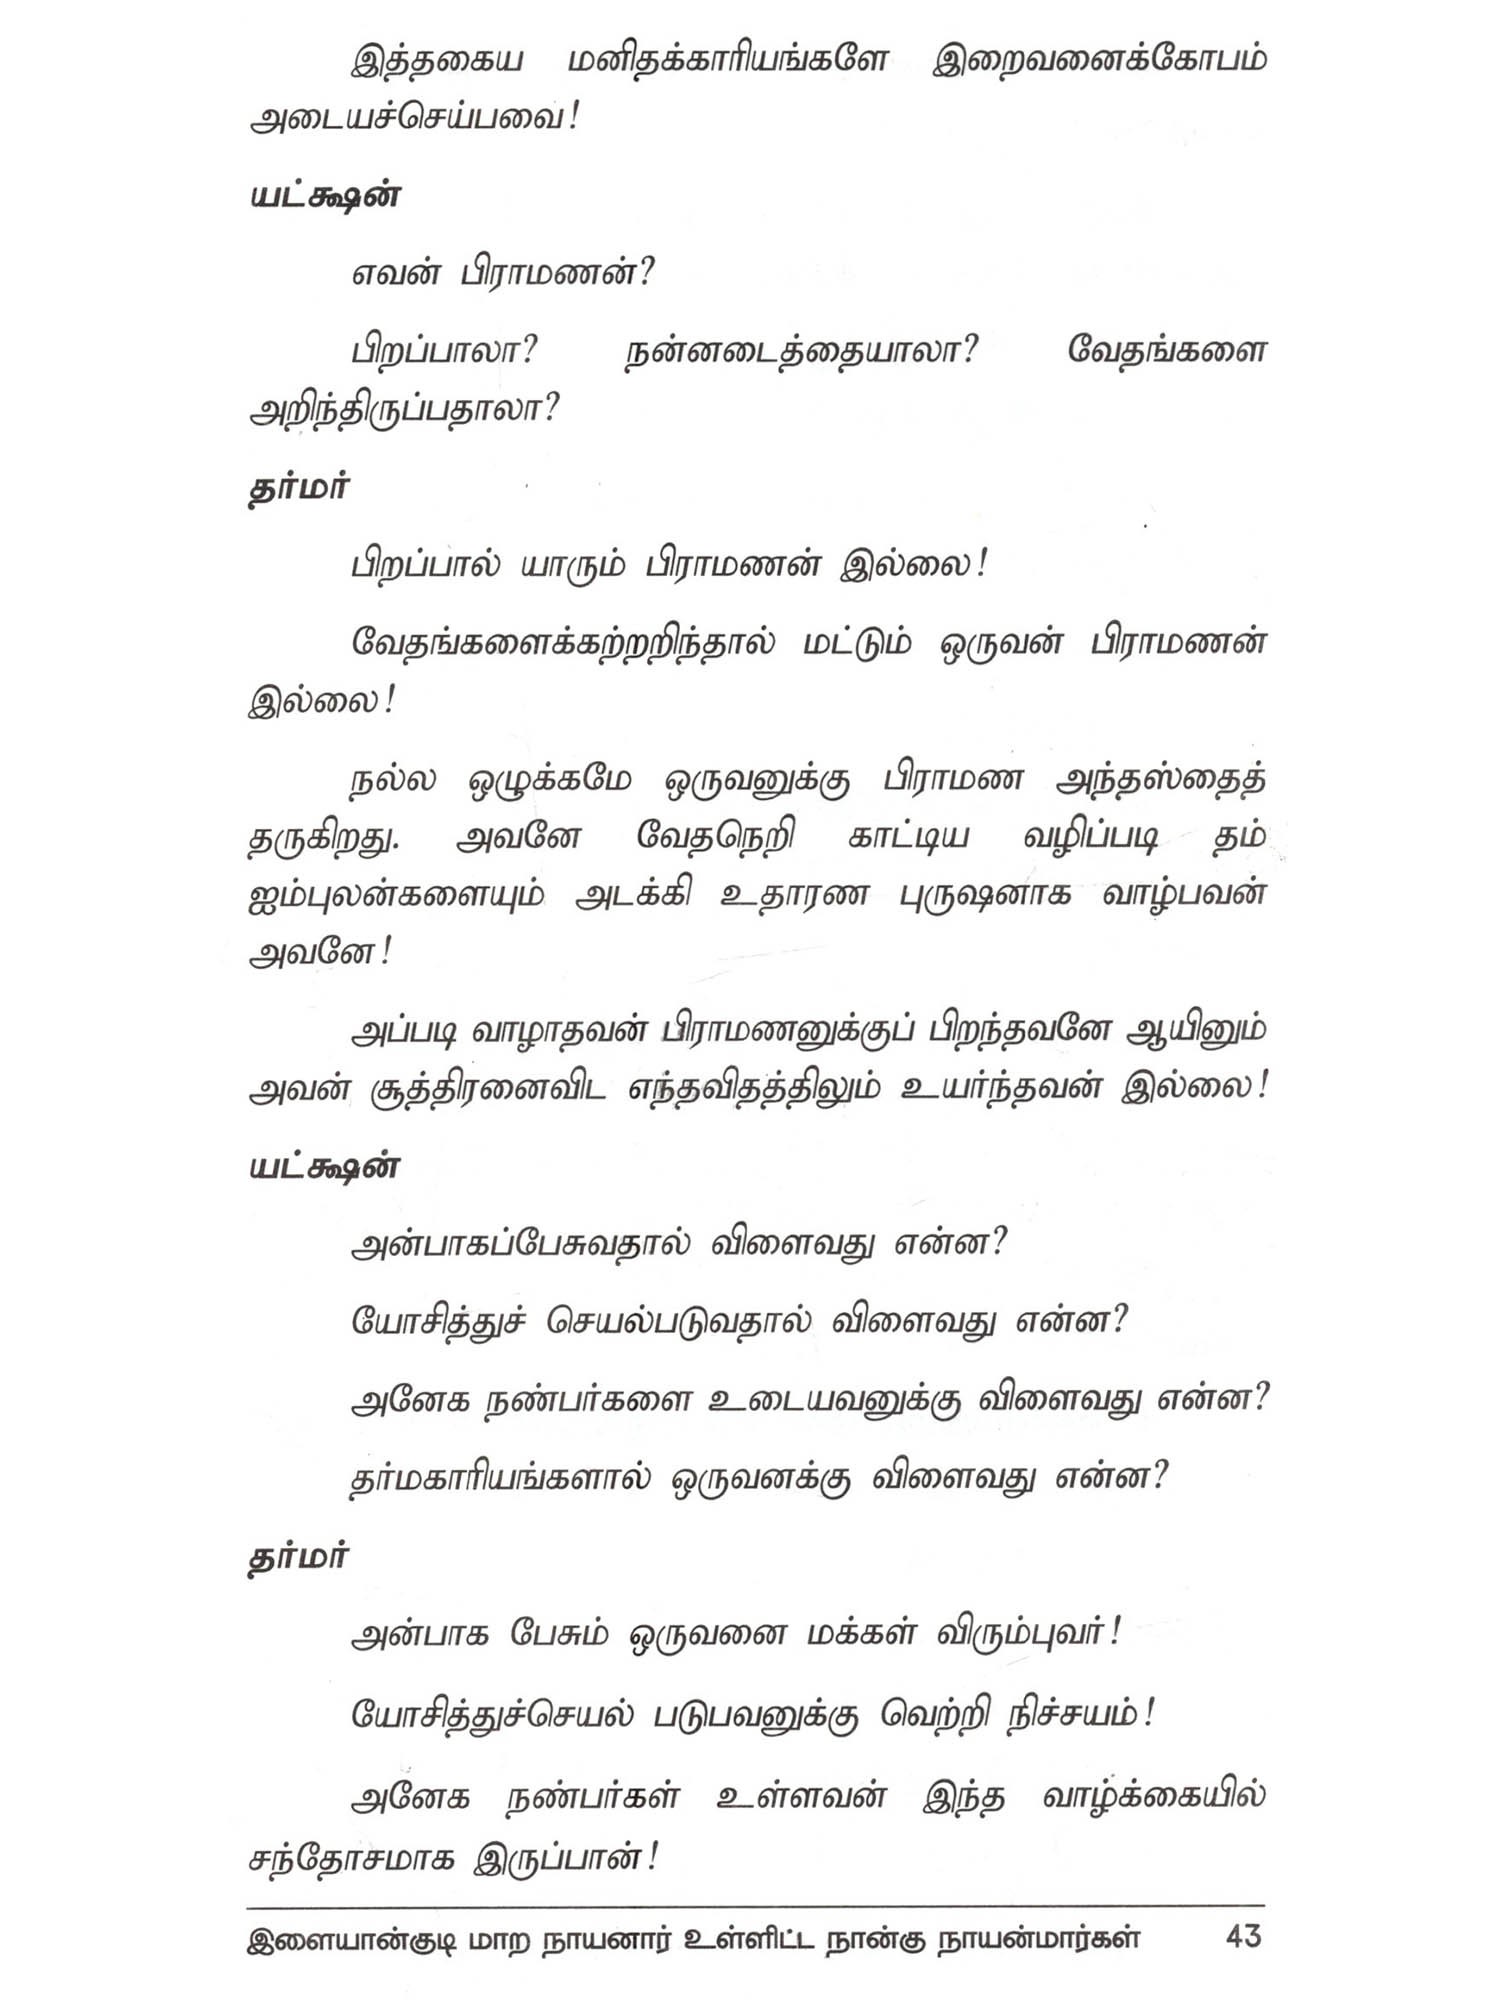 இத்தகைய மனிதக்காரியங்களே இறைவனைக்கோபம்
அடையச்செய்பவை!
யட்க்ஷன்
எவன் பிராமணன்?
பிறப்பாலா? நன்னடைத்தையாலா? வேதங்களை
அறிந்திருப்பதாலா?
தர்மர்
பிறப்பால் யாரும் பிராமணன் இல்லை!
வேதங்களைக்கற்றறிந்தால் மட்டும் ஒருவன் பிராமணன்
இல்லை!
நல்ல ஒழுக்கமே ஒருவனுக்கு பிராமண அந்தஸ்தைத்
தருகிறது. அவனே வேதநெறி காட்டிய வழிப்படி தம்
ஐம்புலன்களையும் அடக்கி உதாரண புருஷனாக வாழ்பவன்
அவனே!
அப்படி வாழாதவன் பிராமணனுக்குப் பிறந்தவனே ஆயினும்
அவன் சூத்திரனைவிட எந்தவிதத்திலும் உயர்ந்தவன் இல்லை!
யட்க்ஷன்
அன்பாகப்பேசுவதால் விளைவது என்ன?
யோசித்துச் செயல்படுவதால் விளைவது என்ன?
அனேக நண்பர்களை உடையவனுக்கு விளைவது என்ன?
தர்மகாரியங்களால் ஒருவனக்கு விளைவது என்ன?
தர்மர்
அன்பாக பேசும் ஒருவனை மக்கள் விரும்புவர்!
யோசித்துச்செயல் படுபவனுக்கு வெற்றி நிச்சயம்!
அனேக நண்பர்கள் உள்ளவன் இந்த வாழ்க்கையில்
சந்தோசமாக இருப்பான்!
இளையான்குடி மாற நாயனார் உள்ளிட்ட நான்கு நாயன்மார்கள் 43